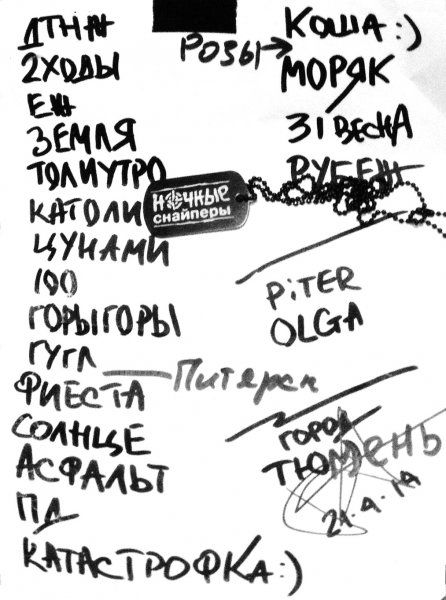 ДТНЖ
2ХОДЫ
ЕЖ
ЗЕМЛЯ
ТОЛИУТРО
КАТОЛИ
ЦУНАМИ
100
ГОРЫГОРЫ
ГУГЛ
Питерск
ФИЕСТА
СОЛНЦЕ
АСФАЛЬТ
ПД
КАТАСТРОФКА:)
РОЗЫ→
КОША:)
МОРЯК
31 ВЕСНА
РУБЕЖ
НОЧНЫЕ
СНАЙПЕРЫ
PiTER
OLGA
ГОРОД
ТЮМЕНЬ
21.4.14